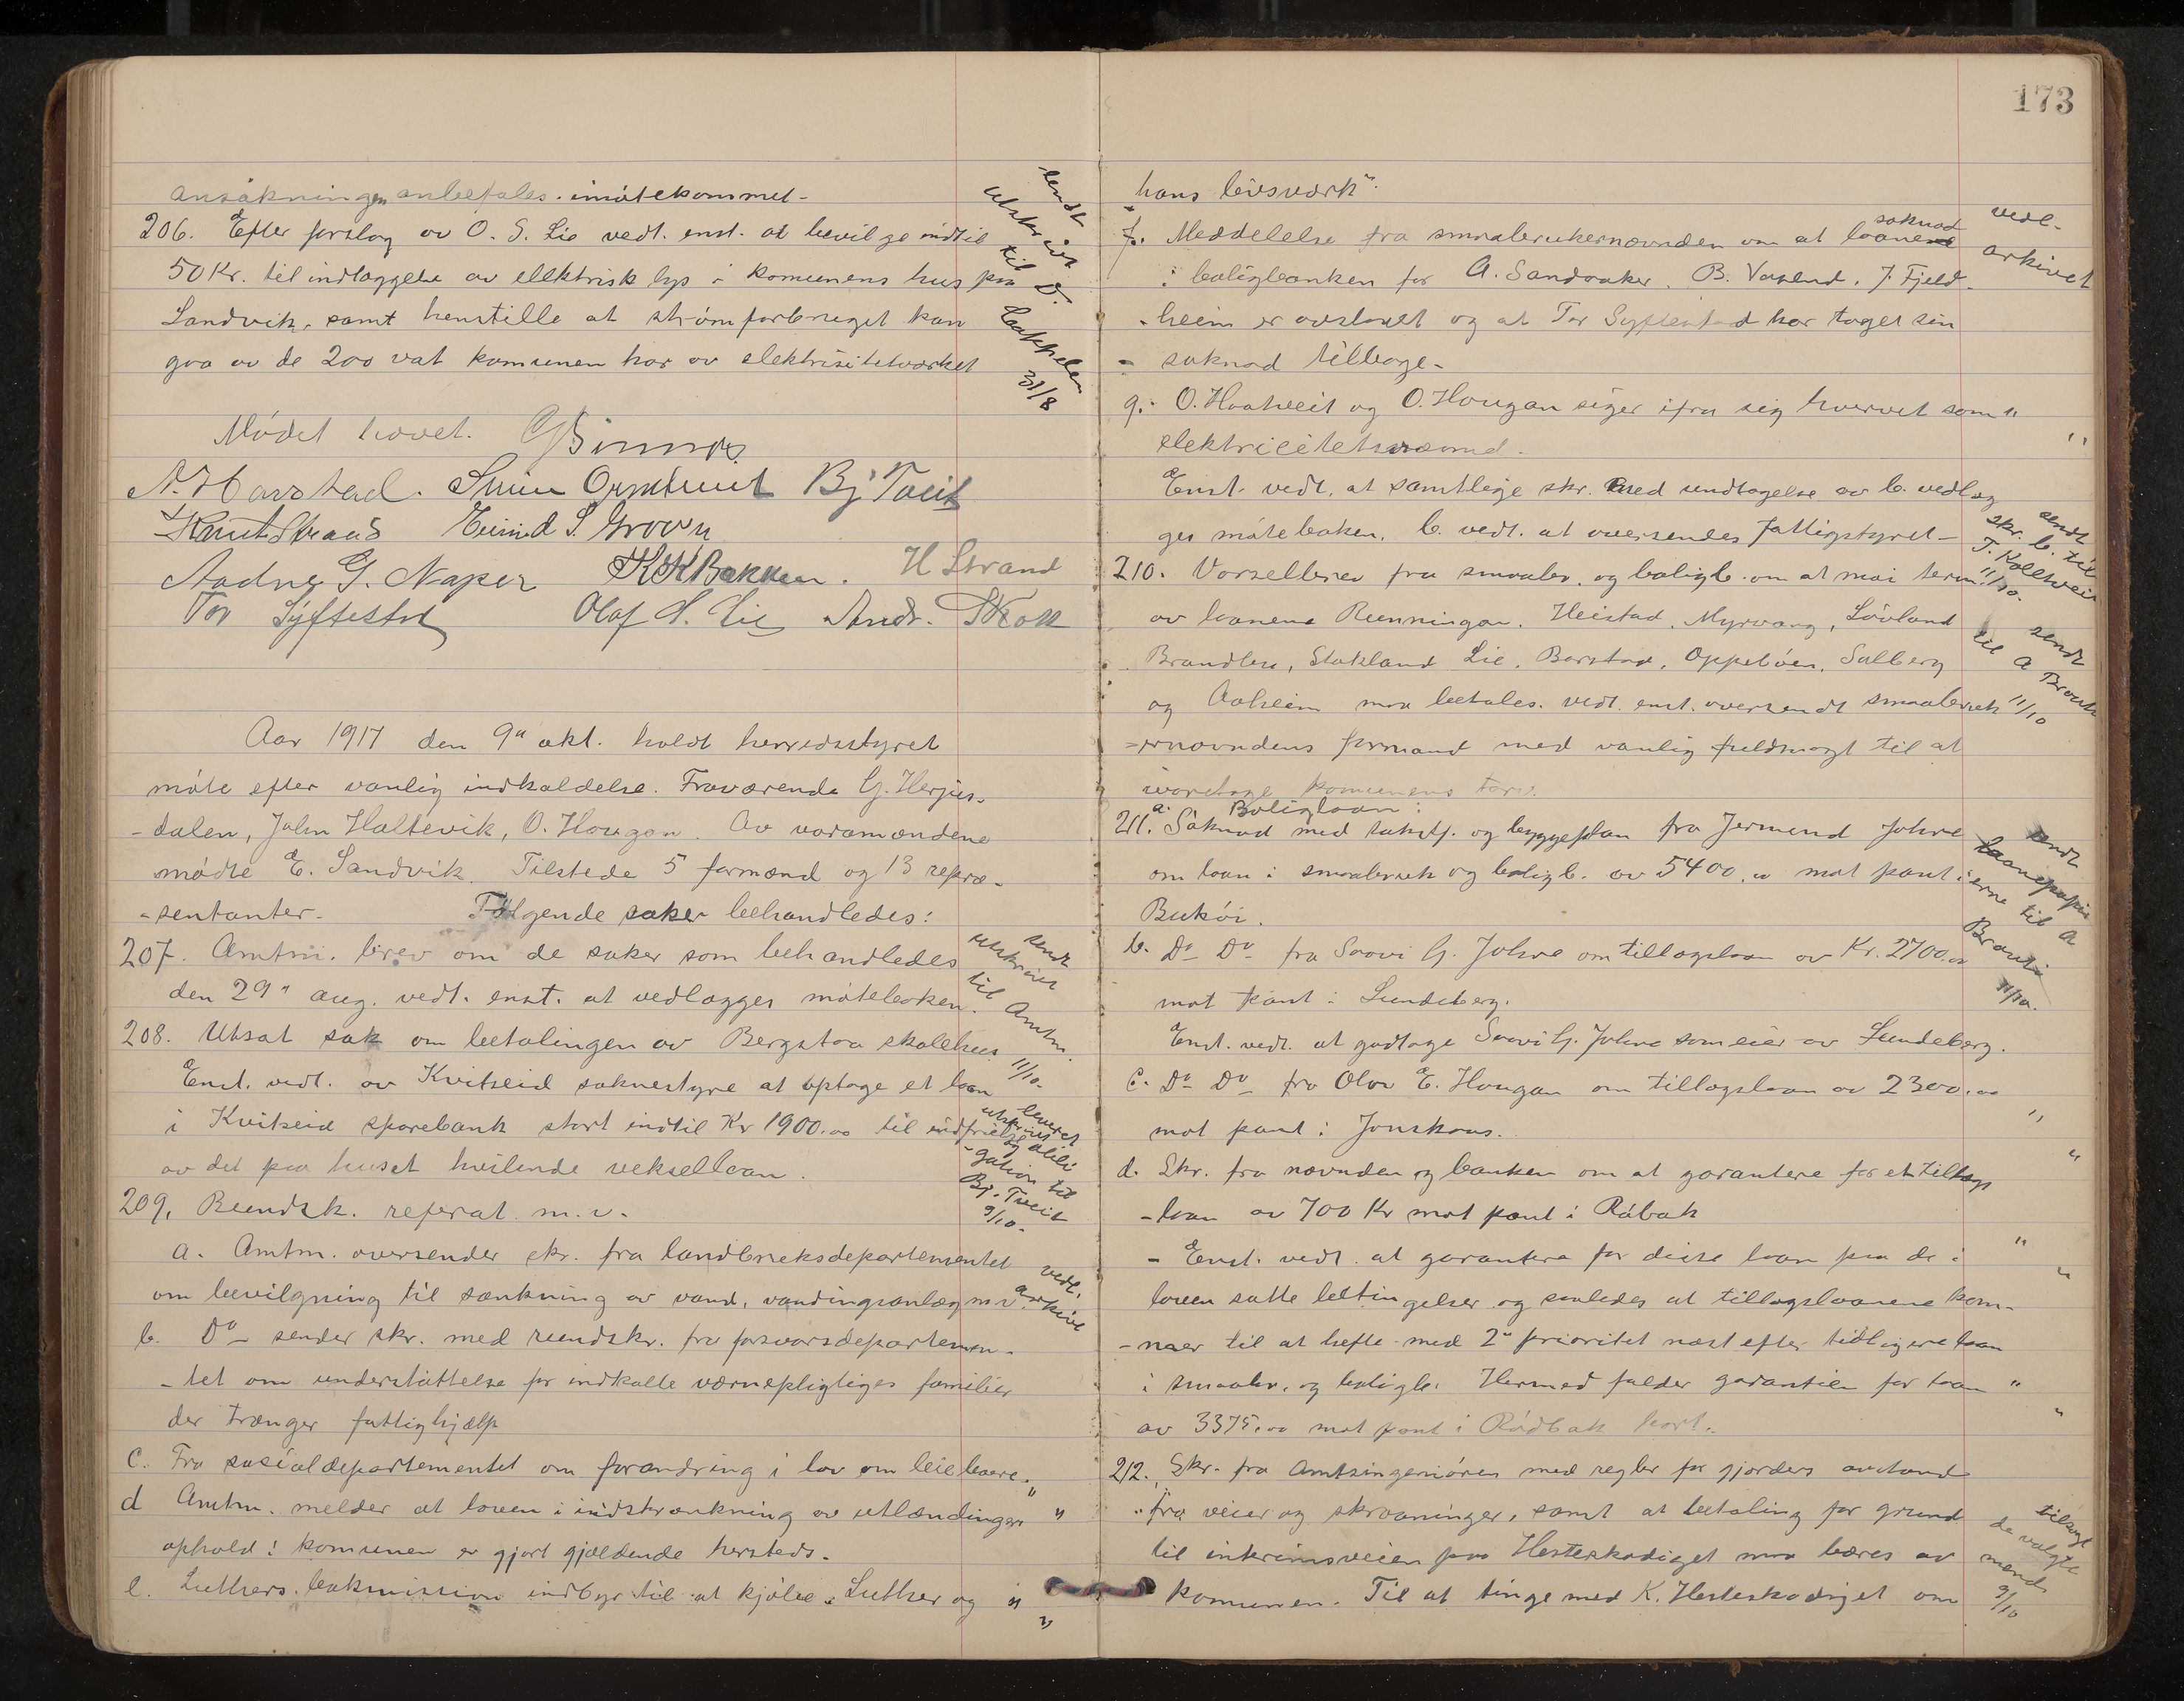 ansøkningen anbefales imøtekommet-
206. Efter forslag av O. S. Lie vedt. enst. at bevilge indtil
50 Kr. til indlæggelse av elektrisk lys i komunens hus paa
Sandvik, samt henstille at strømforbruget kan
gaa av de 200 vat komunen har av elektrisitetsværket
sendt
utskrift
til O.
31/8
Mødet hævet.
N. Havstad. Bj Tveit
Knut Straas Eivind S. Groven
Aadne G. Naper K K Bakken. H Strand
Tor Syftestad Olaf S. Lie Andr. Skott
Aar 1917 den 9de okt. holdt herredsstyret
møte efter vanlig indkaldelse. Fraværende G. Herjus-
-dalen, John Haltevik, O. Hougan. Av varamændene
mødte E. Sandvik. Tilstede 5 formænd og 13 repræ-
-sentanter. Følgende saker behandledes:
207. Amtm. brev om de saker som behandledes
den 29de aug. vedt. enst. at vedlægges møteboken.
sendt
utskrift
til Amtm.
11/10-
208. Utsat sak om betalingen av Bergstaa skolehus
Enst. vedt. av Kvitseid soknestyre at optage et laan
i Kvitseid sparebank stort indtil Kr 1900.00 til indfrielse
av det paa huset hvilende veksellaan.
leveret
utskrift
og obli-
-gation til
Bj. Tveit
9/10-
209. Rundsk. referat m. v.
a. Amtm. oversender skr. fra landbruksdepartementet
om bevilgning til sænkning av vand, vandingsanlæg m. v.
vedl.
arkive
b. Do - sender skr. med rundskr. fra forsvarsdepartemen-
-tet om understøttelse for indkalte værnepligtiges familier
der trænger fattighjælp
c. Fra sosialdepartementet om forandring i lov om leieboere. "
d Amtm. melder at loven i indskrænkning av utlændingers "
ophold i komunen er gjort gjældende hersteds.
e. Luthers bokmission indbyr til at kjøbe "Luther og "
"
173
hans livsverk".
f. Meddelelse fra smaabrukernævnden om at laane søknad
i boligbanken for A. Sandvaker, B. Vavend, J. Fjeld-
-heim er avslaaet og at Tor Syftestad har taget sin
- søknad tilbage-
vedl-
arkivet
g. O. Haatveit og O. Hougan siger ifra sig hvervet som "
elektricitetsnævnd. "
Enst. vedt. at samtlige skr. med undtagelse av b. vedlæg
ges møteboken. b. vedt. at oversendes fattigstyret-
sendt
skr. b. til
T. Kolltveit
11/10.
210. Varselbrev fra smaabr. og boligb. om at mai term.
av laanene Runningen, Heistad, Myrvang, Løvland
Brandlia, Stokland Lie, Barstad, Oppebøen, Solberg
og Aaheim maa betales. vedt. enst. oversendt smaabruk
-ernævndens formand med vanlig fuldmagt til at
ivaretage komunens tarv.
sendt
til A
11/10
Boliglaan:
211. a. Søknad med takstf. og byggeplan fra Jermund Johre
om laan i smaabruk og boligb. av 5400.00 mot pant i
Bukøi.
sendt
laanepapir
erne til A
11/10.
b. Do Do fra Saavi G. Johre om tillægslaan av Kr. 2700.00
mot pant i Lundeberg.
Enst. vedt. at godtage Saavi G. Johre som eier av Lundeberg.
c. Do Do - fra Olav E. Hougan om tillægslaan av 2300.00
mot pant i Jonskaas. "
d. Skr. fra nævnden og banken om at garantere for et tillægs "
-laan av 700 Kr mot pant i Råbæk
- Enst. vedt. at garantere for disse laan paa de i "
loven satte betingelser og saaledes at tillægslaanene kom- "
-mer til at hefte med 2de prioritet næst efter tidligere laan
i smaabr. og boligb. Hermed falder garantien for laan "
av 3375.00 mot pant i Rådbæk bort. "
212. Skr. fra Amtsingeniøren med regler for gjærders avstand
" fra veier og skraaninger, samt at betaling for grund
til interimsveien paa Hesteskodiget maa bæres av
komunen. Til at tinge med K. Hesteskodiget om
tilsagt
de valgte
mænd.
9/10